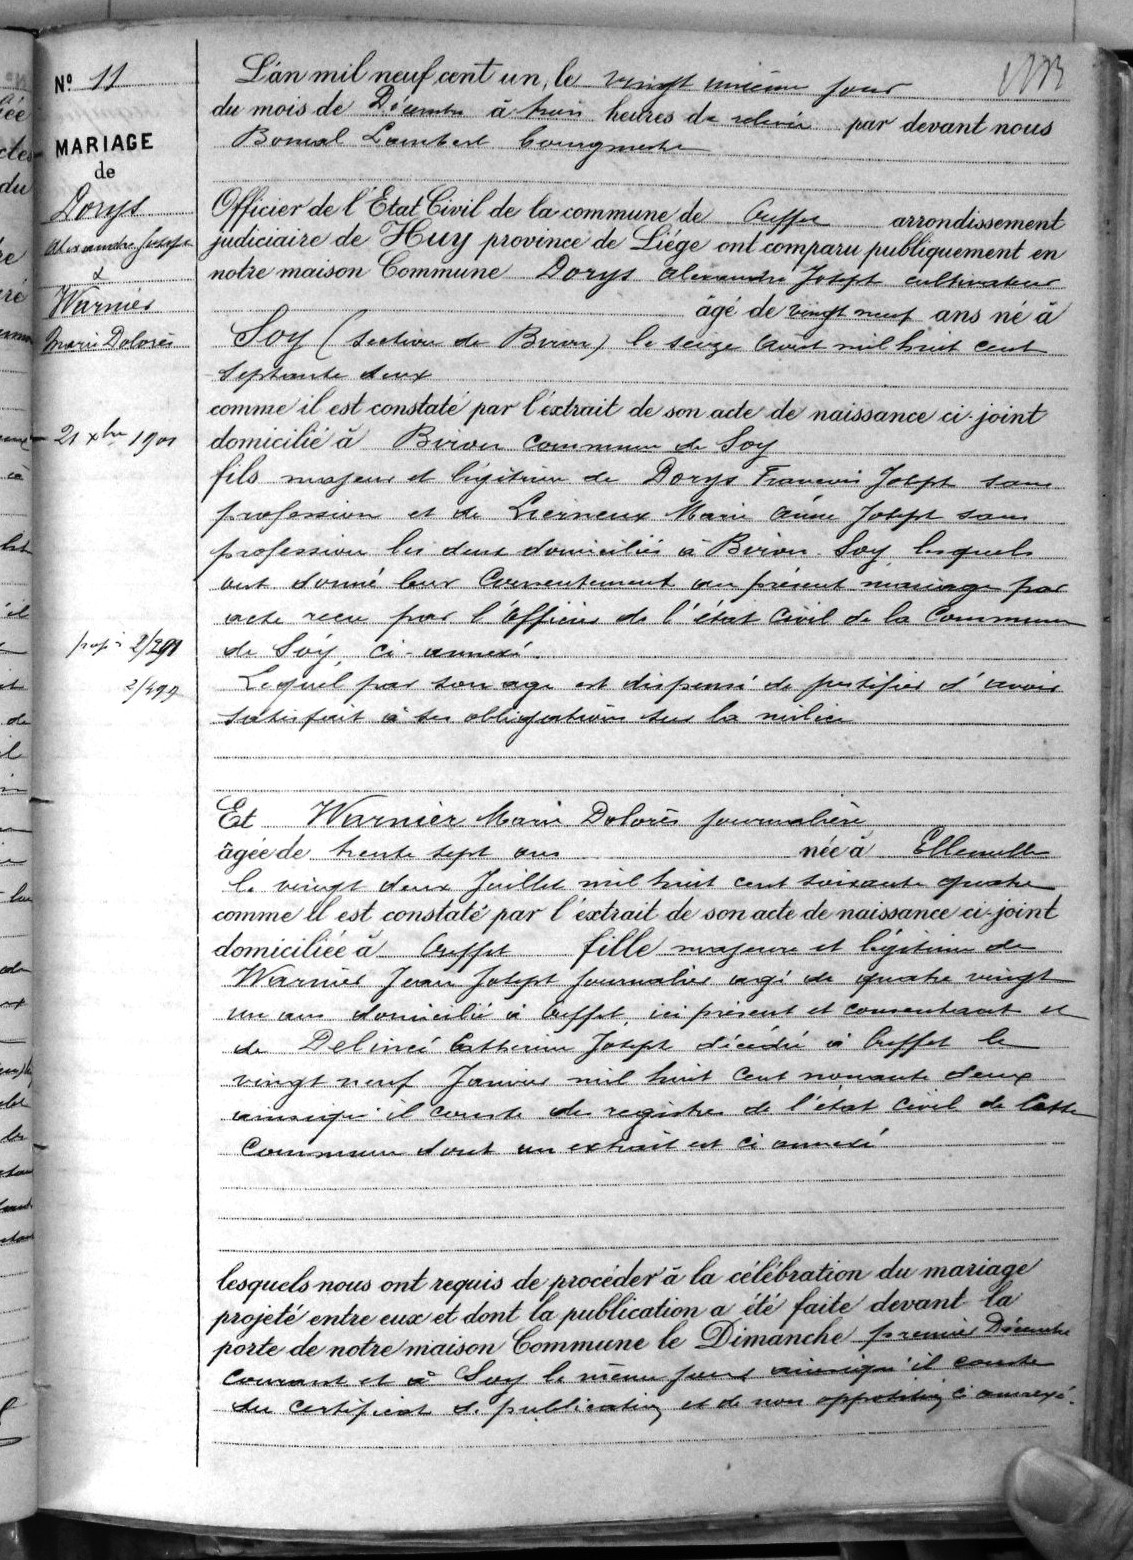 N° 11
MARIAGE
de
Dorys
Alexandre Joseph
&
Warnier
Marie Dolorès
21 xbre 1901
2/499
L'an mil neuf cent un, le vingt unième jour
du mois de Décembre à trois heures de relevée par devant nous
Bonsal Lambert bourgmestre
Officier de l'Etat Civil de la commune de Ouffet arrondissement
judiciaire de Huy province de Liége ont comparu publiquement en
notre maison Commune Dorys Alexandre Joseph cultivateur
âgé de vingt neuf ans né à
Soy (section de Biron) le seize Aout mil huit cent
septante deux
comme il est constaté par l'extrait de son acte de naissance ci-joint
domicilié à Biron commune de Soy
fils majeur et légitime de Dorys François Joseph sans
profession et de Lierneux Marie Anne Joseph sans
profession les deux domiciliés à Biron-Soy, lesquels
ont donné leur consentement au présent mariage par
acte recu par l'Officier de l'état Civil de la Commune
de Soy, ci-annexé.
Lequel par son age est dispensé de justifier d'avoir
satisfait à ses obligations sur la milice
Et Warnier Marie Dolorès journalière
âgée de trente sept ans née à Ellemelle
le vingt deux Juillet mil huit cent soixante quatre
comme il est constaté par l'extrait de son acte de naissance ci-joint
domiciliée à Ouffet fille majeure et légitime de
Warnier Jean Joseph journalier agé de quatre vingt
un ans domicilié à Ouffet, ici présent et consentant et
de Delincé Catherine Joseph décédée à Ouffet le
vingt neuf Janvier mil huit cent nonante deux
ainsiqu'il conste des registres de l'état civil de Cette
Commune dont un extrait est ci annexé
lesquels nous ont requis de procéder à la célébration du mariage
projeté entre eux et dont la publication a été faite devant la
porte de notre maison Commune le Dimanche premier Décembre
courant et à Soy le même jour ainsiqu'il conste
du certificat de publication et de non opposition ci annexé.